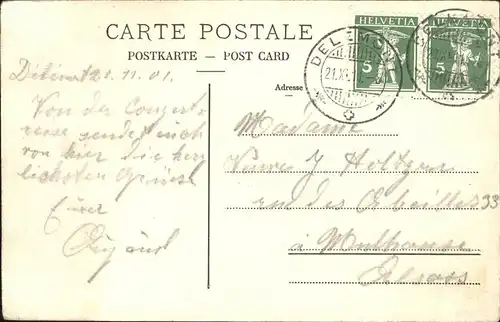 CARTE POSTALE
POSTKARTE - POST CARD
HELVETIA HELVETIA
5 5
DELEMONT
21.XI.
Adresse
21.11.01.
Von der Concert
reise sendet euch
von hier die herz
lichsten Grüsse
Euer
August
Madame
Veuve J Holtzer
rue des Abeilles 33
à Mulhouse
Alsace